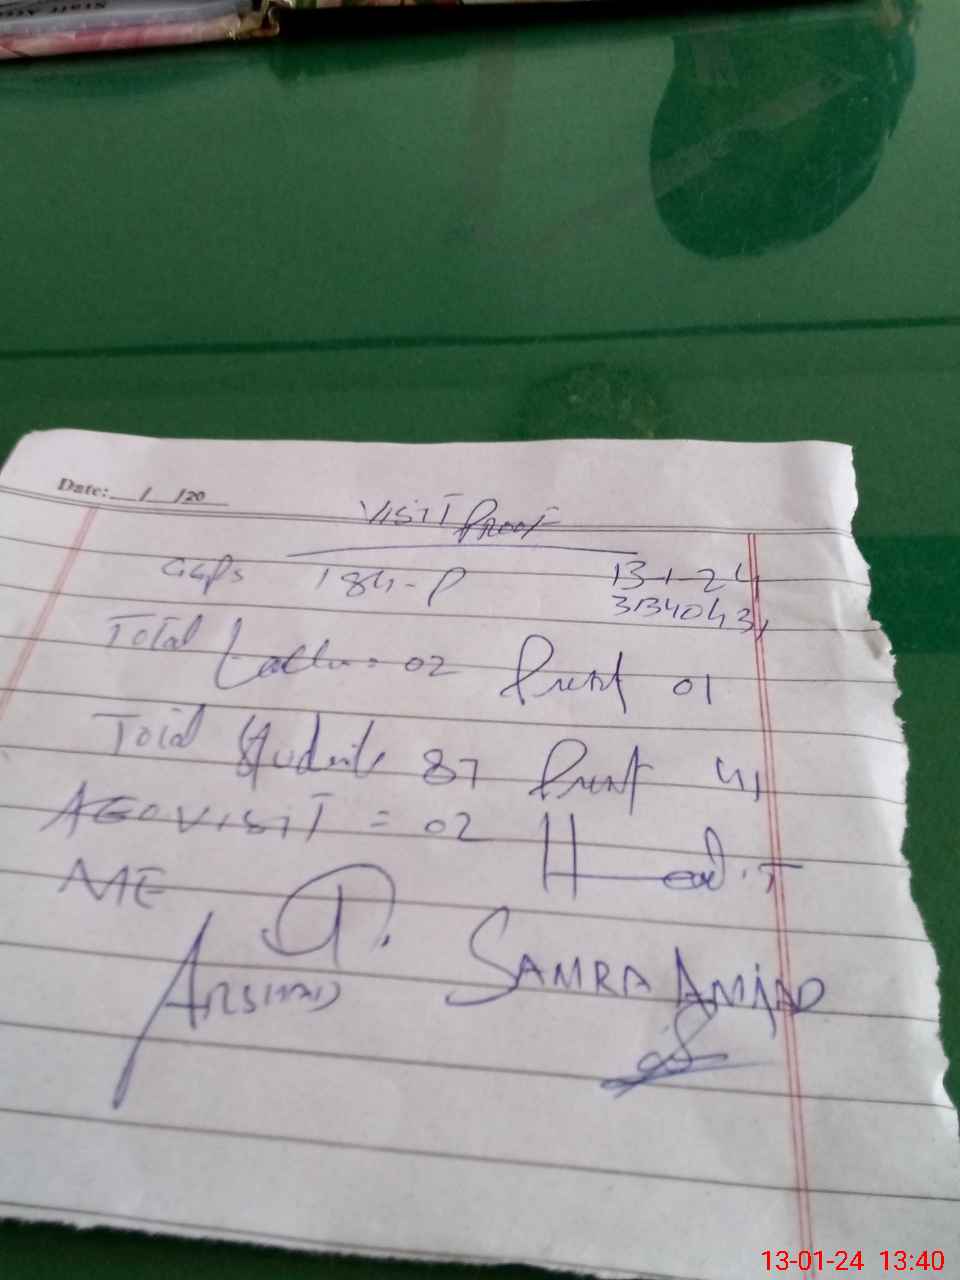 Date: / /20
VISIT Proof
GGPS 184-P 13-1-24
31340431
Total = 02 Present 01
Total Students 87 Present 41
AEO VISIT = 02 Head.T
ME
ARSHAD SAMRA AMJAD
13-01-24 13:40